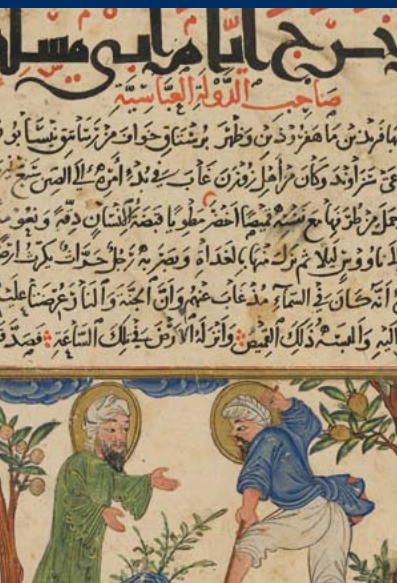 خرج ايام ابى مسلم
صاحب الدولة العباسية
ماه فروذين وظهر برستاق خواف من رساتيق نيسابور
سراوند وكان من اهل زوزن غاب فى بدء امره الى الصين سبع
حمل من طرفها مع نفسه قميصا اخضر مطويا قبضة الانسان دقة ونعومة
ناووس ليلا ثم نزل منها بالغداة وبصر به رجل حراث يكرب ارض
انه كان فى السماء مذ غاب عنهم وان الجنة والنار عرضتا عليه
اليه والبسه ذلك القميص وانزله الارض فى تلك الساعة فصدقه